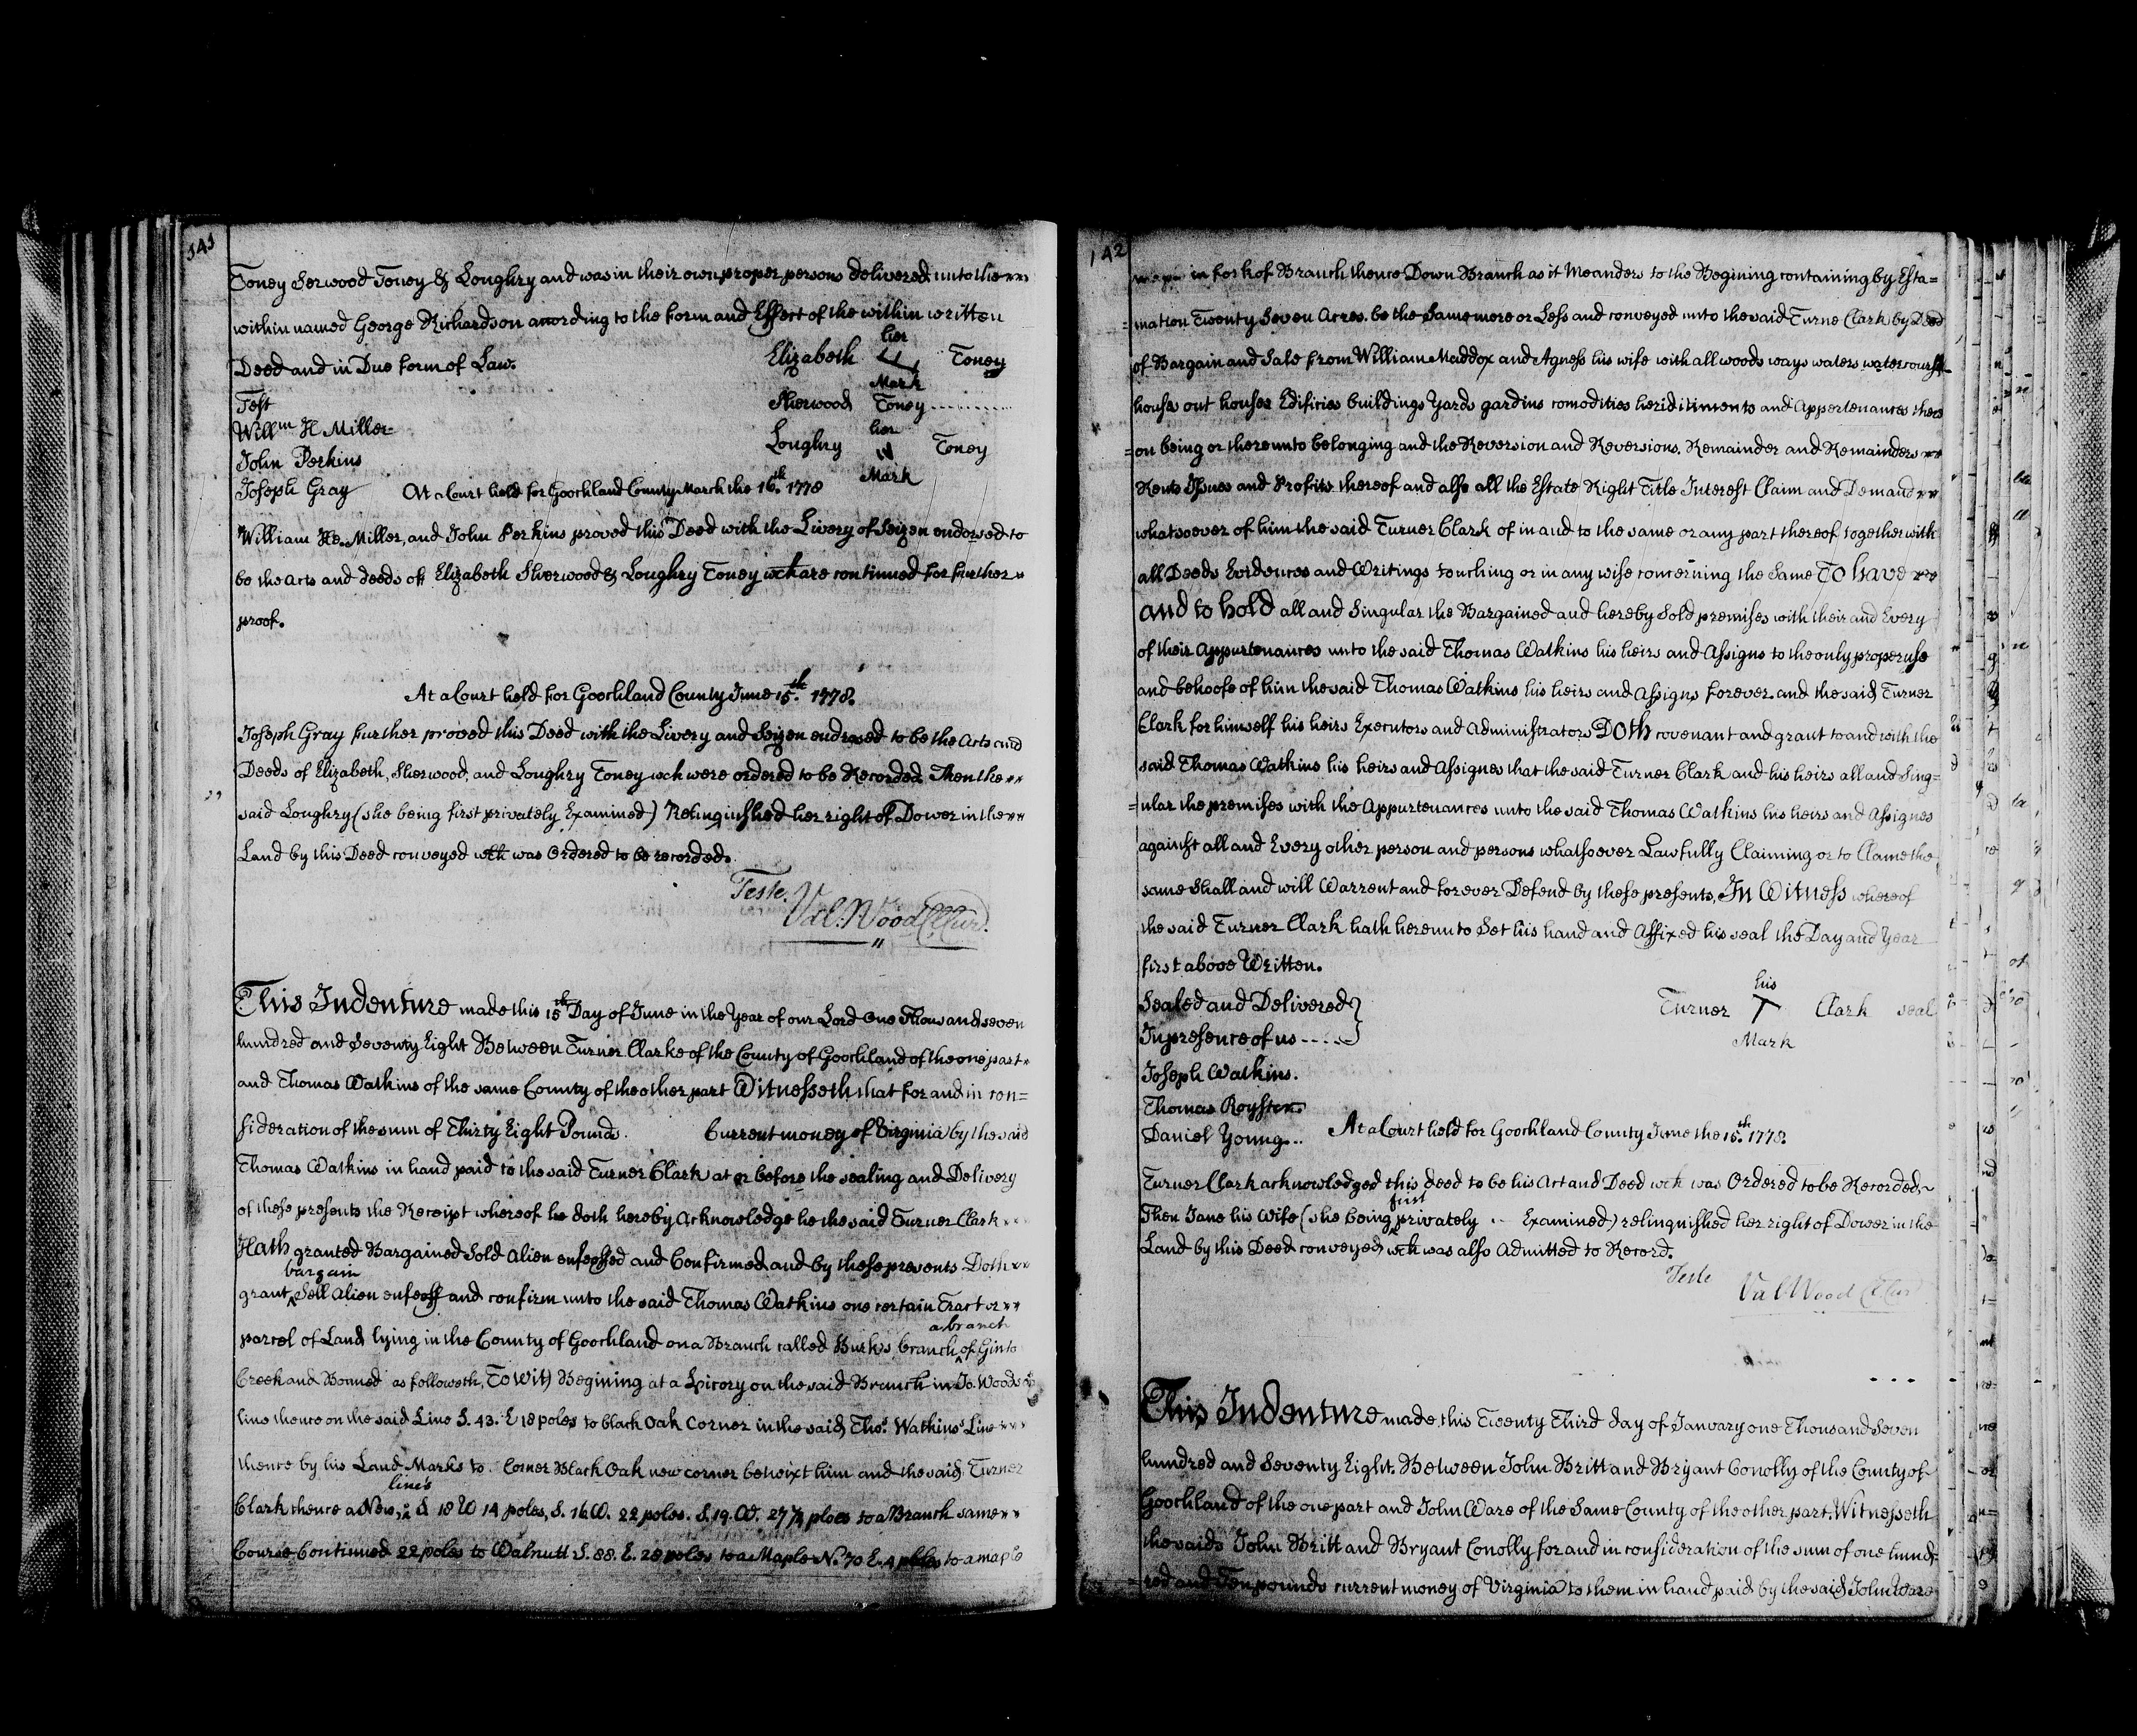 141
Toney Serwood Toney & Loughry and was in their own proper persons delivered unto the
within named George Richardson according to the form and Effect of the within written
Deed and in Due form of Law.
Elizabeth her Mark Toney
Test
Sherwood Toney
Willm H Miller
Loughry her Mark Toney
John Perkins
Joseph Gray
At a Court held for Goochland County March the 16th. 1778
William He. Miller, and John Perkins proved this Deed with the Livery of Seizen endorsed to
be the Acts and deeds of Elizabeth Sherwood & Loughry Toney wch are continued for further
proof.
At a Court held for Goochland County June 15th. 1778.
Joseph Gray further proved this Deed with the Livery and Seizen endrosed to be the Acts and
Deeds of Elizabeth, Sherwood, and Loughry Toney wch were ordered to be Recorded. Then the
said Loughry (she being first privately Examined) Relinquished her right of Dower in the
Land by this Deed conveyed wch was Ordered to be recorded.
Teste.
Val. Wood Cl Cur.
This Indenture made this 15th Day of June in the Year of our Lord One Thousand seven
hundred and Seventy Eight Between Turner Clarke of the County of Goochland of the one part
and Thomas Watkins of the same County of the other part Witnesseth that for and in con=
sideration of the sum of Thirty Eight Pounds. Current money of Virginia by the said
Thomas Watkins in hand paid to the said Turner Clark at or before the sealing and Delivery
of these presents the Receipt whereof he doth hereby Acknowledge he the said Turner Clark
Hath granted Bargained Sold Alien enfeoffed and Confirmed and by these presents Doth
bargain
grant, Sell Alien enfeoff and confirm unto the said Thomas Watkins one certain Tract or
a branch
parcel of Land lying in the County of Goochland on a Branch called Burks branch of Ginto
Creek and Bouned as followeth, To wit) Begining at a Hicory on the said Branch in Jo. Woods
line thence on the said Line S. 43. E 18 poles to black Oak Corner in the said Thos. Watkins' Line
thence by his Land Marks to. Corner Black Oak new corner betwixt him and the said Turner
line's
Clark thence a New, S 18 W 14 poles, S. 16 W. 22 poles. S. 19. W. 27 1/2 ploes to a Branch same
Course Continued 22 poles to Walnutt S. 88. E. 28 poles to a Maple N. 70 E. 4 poles to a maple
142
in fork of Branch thence Down Branch as it Meanders to the Begining containing by Esta=
=mation Twenty Seven Acres. be the Same more or Less and conveyed unto the said Turne Clark by Deed
of Bargain and Sale from William Maddox and Agness his wife with all woods ways waters watercourses
houses out houses Edificies buildings Yards gardins comodities heriditiments and Appertenances there
=on being or thereunto belonging and the Reversion and Reversions. Remainder and Remainders
Rents Issues and Profits thereof and also all the Estate Right Title Interest Claim and Demand
whatsoever of him the said Turner Clark of in and to the same or any part thereof together with
all Deeds Evidences and Writings touching or in any wise concerning the Same To have
and to hold all and Singular the Bargained and hereby Sold premises with their and Every
of their Appurtenances unto the said Thomas Watkins his heirs and Assigns to the only proper use
and behoofe of him the said Thomas Watkins his heirs and Assigns forever. and the said Turner
Clark for himself his heirs Executors and Administrators Doth covenant and grant to and with the
said Thomas Watkins his heirs and Assignes that the said Turner Clark and his heirs all and Sing=
=ular the premises with the Appurtenances unto the said Thomas Watkins his heirs and Assignes
against all and Every other person and persons whatsoever Lawfully Claiming or to Clame the
same Shall and will Warrent and forever Defend by these presents, In Witness whereof
the said Turner Clark hath hereunto Set his hand and Affixed his seal the Day and Year
first above Written.
Sealed and Delivered
In presence of us
Turner his T Mark Clark seal
Joseph Watkins.
Thomas Royster
Daniel Young
At a Court held for Goochland County June the 15th. 1778.
Turner Clark acknowledged this deed to be his Act and Deed wch was Ordered to be Recorded,
first
Then Jane his Wife (she being privately Examined) relinquished her right of Dower in the
Land by this Deed conveyed wch was also Admitted to Record.
Teste
Val. Wood Cl Cur
This Indenture made this Twenty Third day of January one Thousand Seven
hundred and Seventy Eight. Between John Britt and Bryant Conolly of the County of
Goochland of the one part and John Ware of the Same County of the other part. Witnesseth
the saids John Britt and Bryant Conolly for and in consideration of the sum of one hund=
=red and Ten pounds current money of Virginia to them in hand paid by the said John Ware